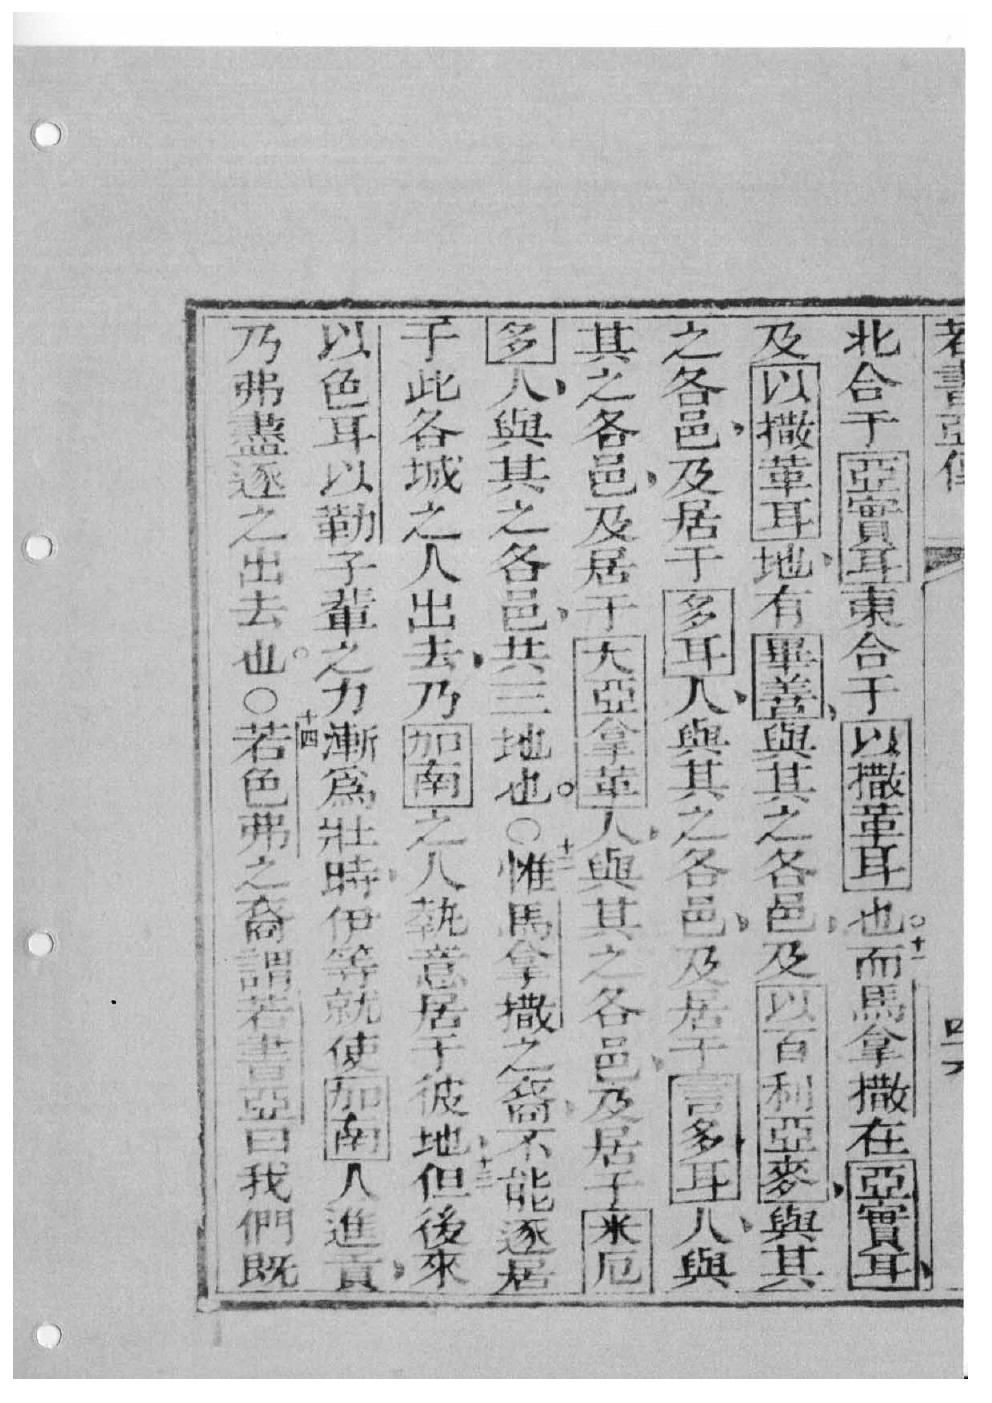 若書亞傳
四六
北合于亞實耳東合于以撒革耳也。十一而馬拿撒在亞實耳、
及以撒革耳地、有畢善、與其之各邑、及以百利亞麥、與其
之各邑、及居于多耳人、與其之各邑、及居于言多耳人、與
其之各邑、及居于大亞拿革人、與其之各邑、及居于米厄
多人、與其之各邑、共三地也。○十二惟馬拿撒之裔、不能逐居
于此各城之人出去、乃加南之人執意居于彼地、十三但後來
以色耳以勒子輩之力漸爲壯時、伊等就使加南人進貢、
乃弗盡逐之出去也。○十四若色弗之裔謂若書亞曰我們既